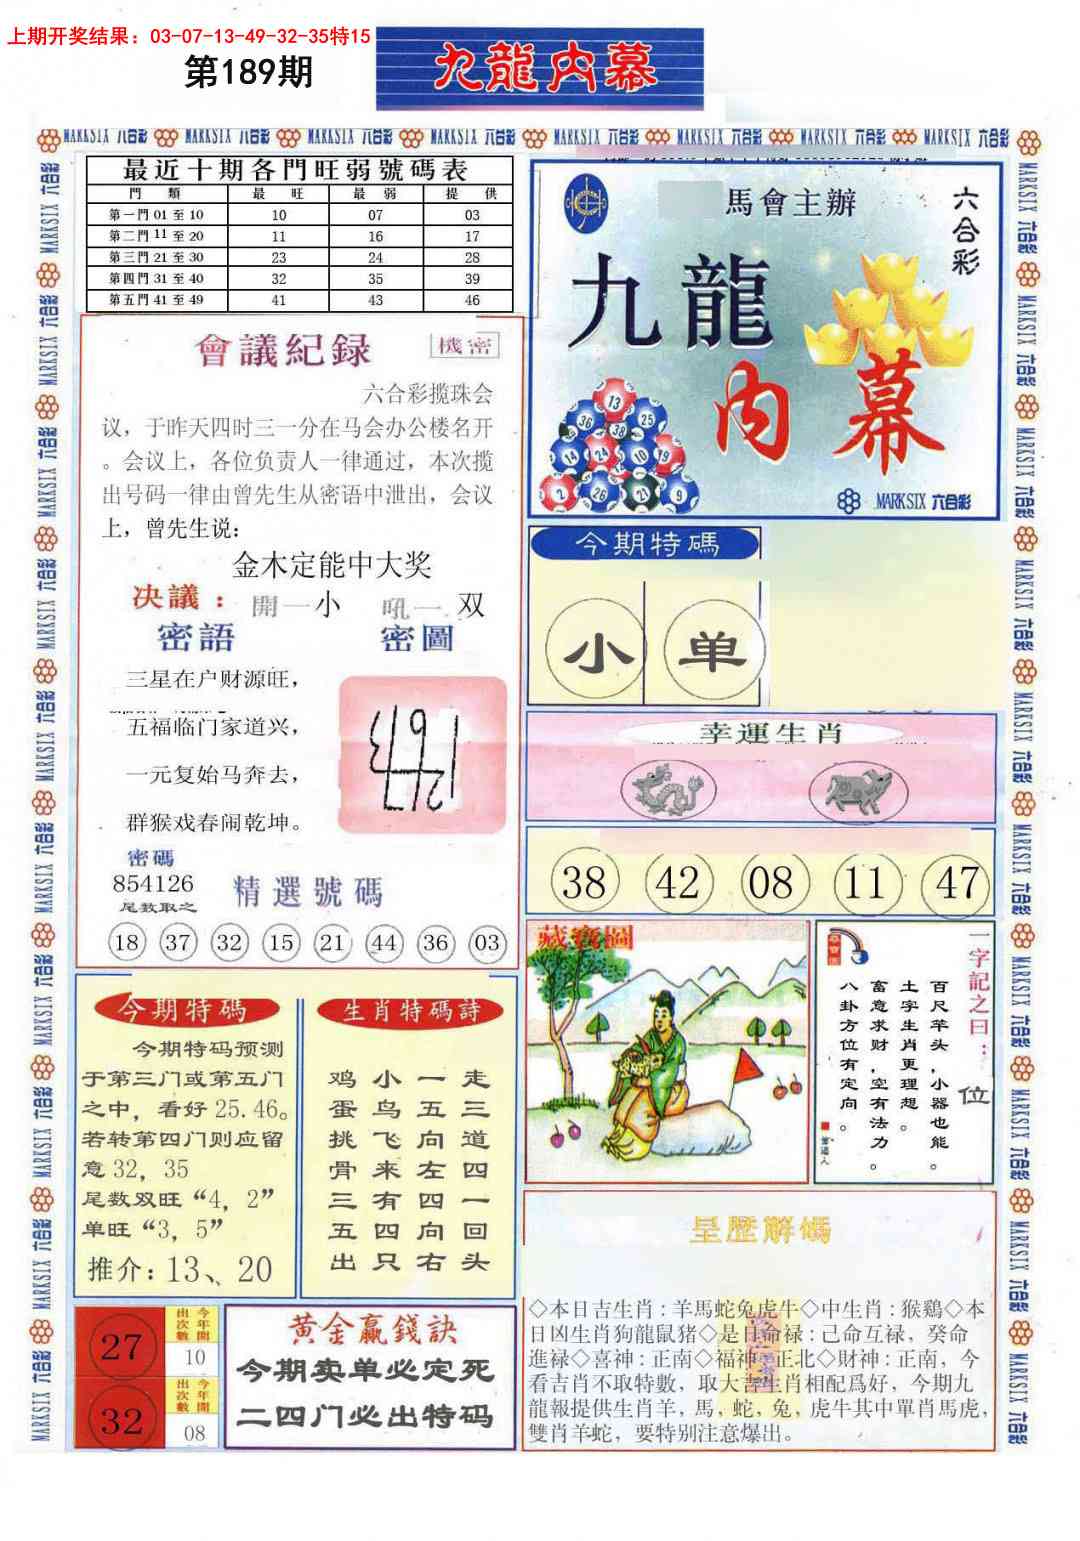 上期开奖结果：03-07-13-49-32-35特15
第189期
九龍内幕
MARKSIX 六合彩
最近十期各門旺弱號碼表
門 類 最 旺 最 弱 提 供
第一門01至10 10 07 03
第二門11至20 11 16 17
第三門21至30 23 24 28
第四門31至40 32 35 39
第五門41至49 41 43 46
馬會主辦
六合彩
九龍
内幕
13
36 38 25
14 24 10 19
2 26 21 9
MARKSIX 六合彩
會議紀録
機密
六合彩揽珠会
议，于昨天四时三一分在马会办公楼名开
。会议上，各位负责人一律通过，本次揽
出号码一律由曾先生从密语中泄出，会议
上，曾先生说：
金木定能中大奖
决議： 開一小 吼一双
密語 密圖
三星在户财源旺，
五福临门家道兴，
一元复始马奔去，
群猴戏春闹乾坤。
密碼
854126
尾数取之
精選號碼
18 37 32 15 21 44 36 03
今期特碼
小 单
幸運生肖
38 42 08 11 47
藏寶圖
一字記之曰：
位
百尺竿头，小器也能。
土字生肖更理想。
富意求财，空有法力。
八卦方位有定向。
今期特码
今期特码预测
于第三门或第五门
之中，看好25.46。
若转第四门则应留
意32，35
尾数双旺“4，2”
单旺“3，5”
推介：13、20
生肖特碼詩
鸡小一走
蛋鸟五三
挑飞向道
骨来左四
三有四一
五四向回
出只右头
27
今年開出次數
10
32
今年開出次數
08
黄金赢錢訣
今期卖单必定死
二四门必出特码
呈歷解碼
◇本日吉生肖：羊馬蛇兔虎牛◇中生肖：猴鷄◇本
日凶生肖狗龍鼠猪◇是日命禄：己命互禄，癸命
進禄◇喜神：正南◇福神：正北◇財神：正南，今
看吉肖不取特數，取大吉生肖相配爲好，今期九
龍報提供生肖羊，馬，蛇，兔，虎牛其中單肖馬虎，
雙肖羊蛇，要特别注意爆出。